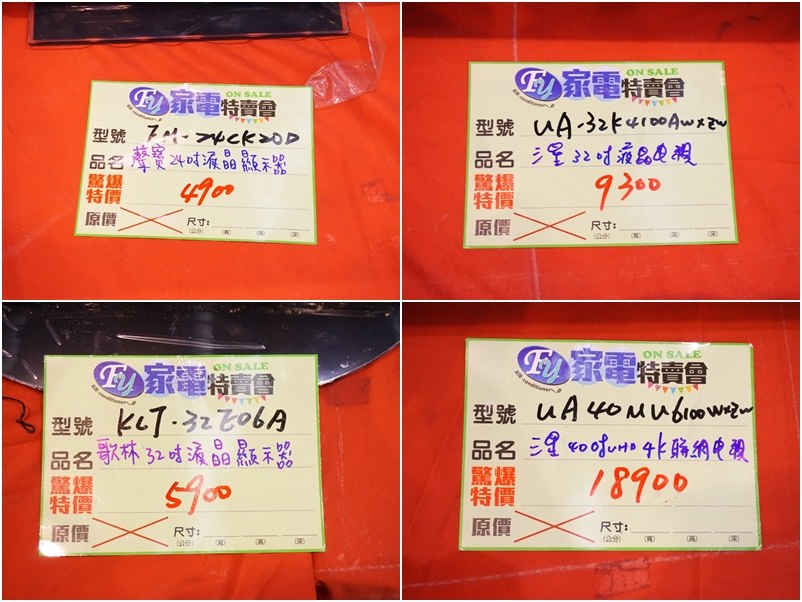 FY 家電特賣會 ON SALE
AIR conditioner
型號 EM-24CK20D
品名 聲寶24吋液晶顯示器
驚爆特價 4900
原價 尺寸:
(公分) (寬) (高) (深)
FY 家電特賣會 ON SALE
AIR conditioner
型號 UA-32K4100AWXZW
品名 三星32吋液晶电視
驚爆特價 9300
原價 尺寸:
(公分) (寬) (高) (深)
FY 家電特賣會 ON SALE
AIR conditioner
型號 KLT-32E06A
品名 歌林32吋液晶顯示器
驚爆特價 5900
原價 尺寸:
(公分) (寬) (高) (深)
FY 家電特賣會 ON SALE
AIR conditioner
型號 UA40MU6100WXZW
品名 三星40吋UHD 4K聯網电視
驚爆特價 18900
原價 尺寸:
(公分) (寬) (高) (深)